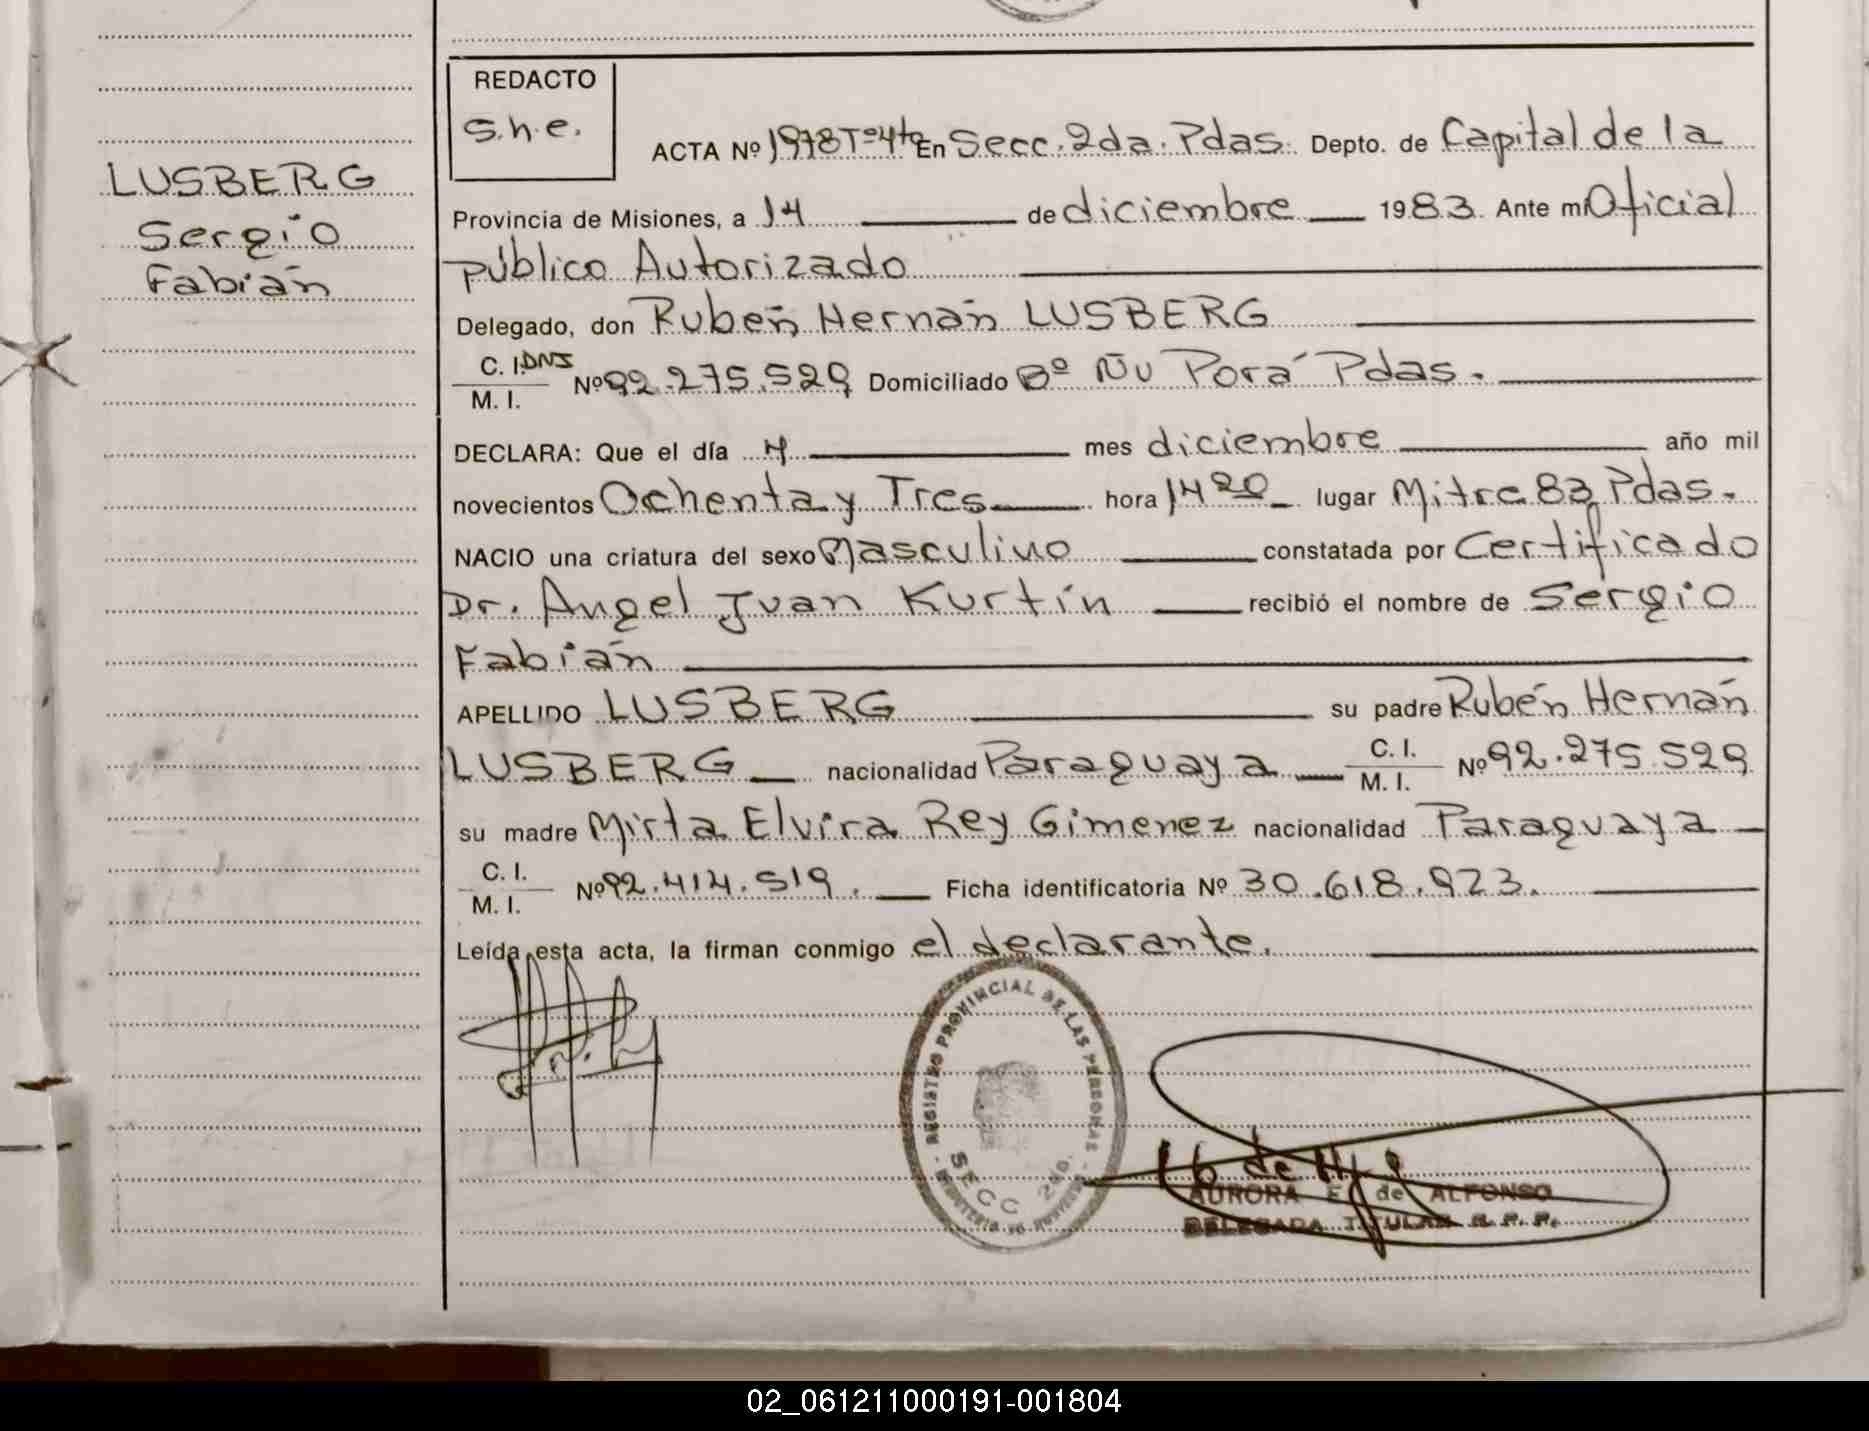 REDACTO
S.h.e.
ACTA Nº 1978 Tº 4to En Secc. 2da. Pdas. Depto. de Capital de la
LUSBERG
Sergio
Fabián
Provincia de Misiones, a 14 de diciembre 1983. Ante mi Oficial
público Autorizado
Delegado, don Rubén Hernán LUSBERG
C. I. DNI
M. I.
Nº 92.275.529 Domiciliado Bº Ñu Porá Pdas.
DECLARA: Que el día 4 mes diciembre año mil
novecientos Ochenta y Tres hora 14 20 lugar Mitre 83 Pdas.
NACIO una criatura del sexo Masculino constatada por Certificado
Dr. Angel Juan Kurtin recibió el nombre de Sergio
Fabián
APELLIDO LUSBERG su padre Rubén Hernán
LUSBERG nacionalidad Paraguaya C. I. M. I. Nº 92.275.529
su madre Mirta Elvira Rey Gimenez nacionalidad Paraguaya
C. I. M. I. Nº 92.414.519. Ficha identificatoria Nº 30.618.923.
Leída esta acta, la firman conmigo el declarante.
REGISTRO PROVINCIAL DE LAS PERSONAS
SECC 2da.
AURORA E. de ALFONSO
DELEGADA TITULAR R. P. P.
02_061211000191-001804